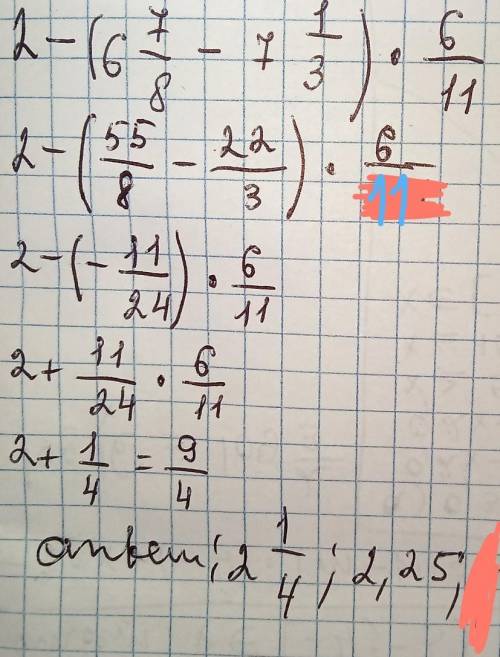 2 - (6 7/8 - 7 1/3) · 6/11
2 - (55/8 - 22/3) · 6/11
2 - (- 11/24) · 6/11
2 + 11/24 · 6/11
2 + 1/4 = 9/4
ответ: 2 1/4; 2,25;